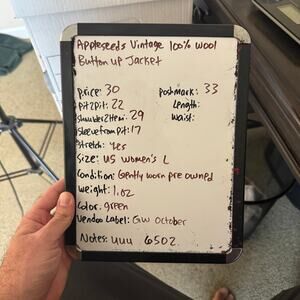 Appleseeds Vintage 100% wool
Button up Jacket
Price: 30
Poshmark: 33
Pit2pit: 22
Length:
Shoulder2Hem: 29
Waist:
Sleeve from Pit: 17
Stretch: yes
Size: US Women's L
Condition: Gently worn pre owned
Weight: 1.02
Color: green
Vendoo Label: GW October
Notes: 444 650Z